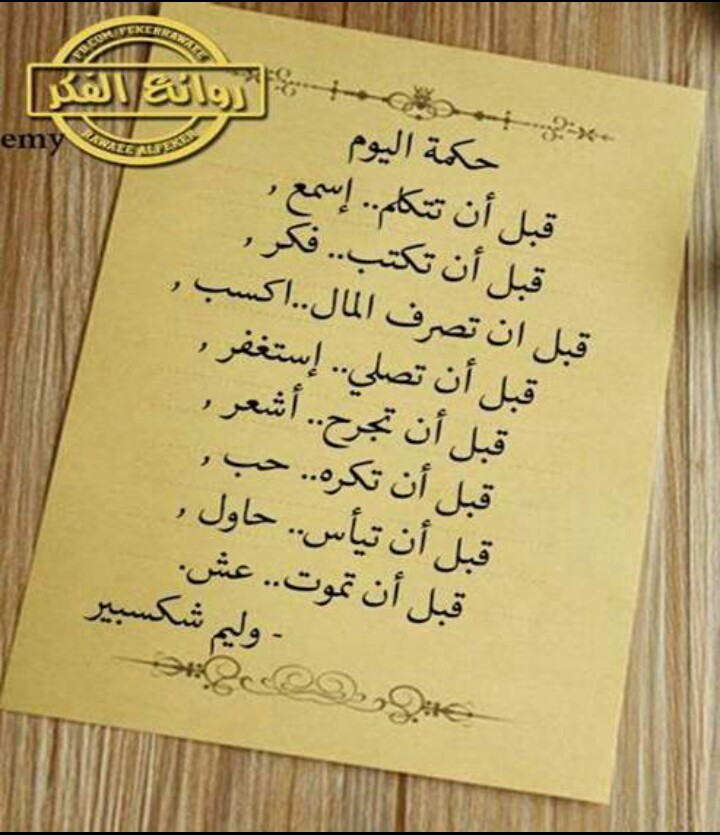 FB.COM/FEKERRAWAEE
روائع الفكر
RAWAEE ALFEKER
emy
حكمة اليوم
قبل أن تتكلم.. إسمع ,
قبل أن تكتب.. فكر ,
قبل ان تصرف المال..اكسب ,
قبل أن تصلي.. إستغفر ,
قبل أن تجرح.. أشعر ,
قبل أن تكره.. حب ,
قبل أن تيأس.. حاول ,
قبل أن تموت.. عش.
- وليم شكسبير